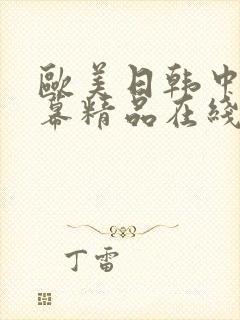 歐美日韩中
幕精品在綫
丁雷